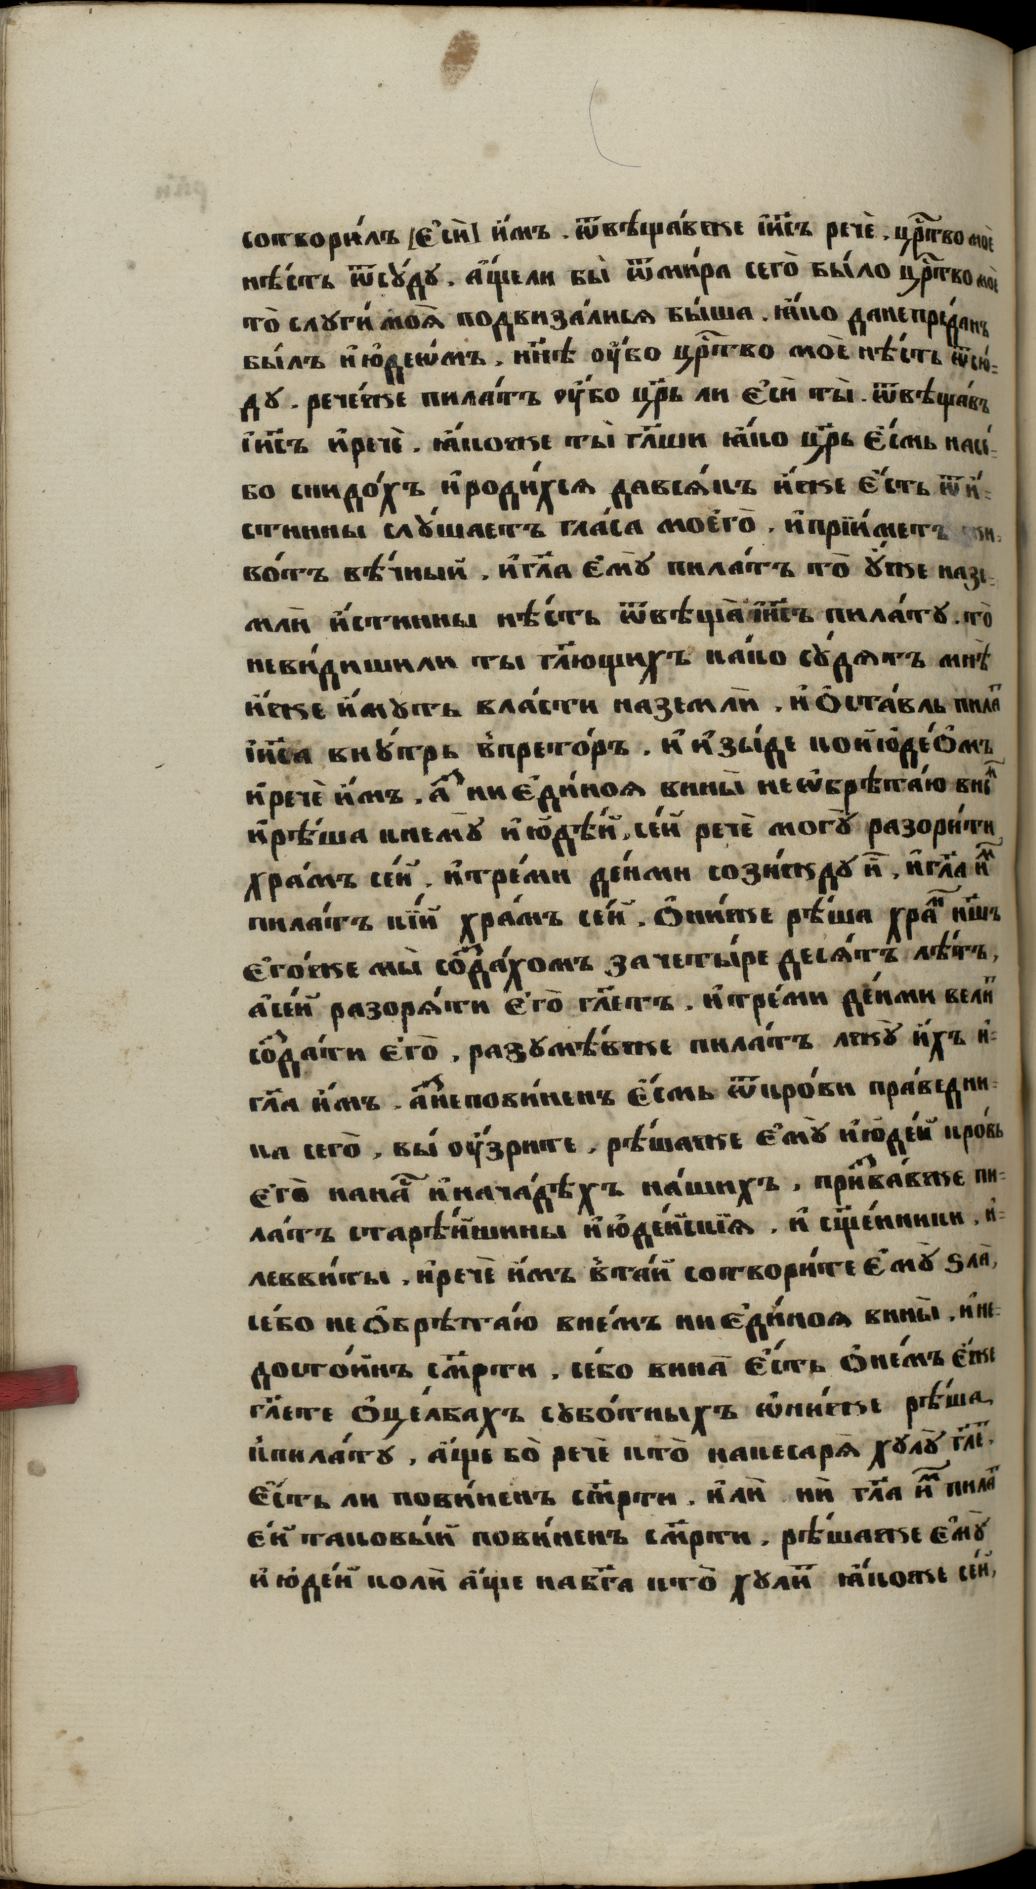 сотвори́лъ [є҆сѝ] и҆́мъ . ѿвѣща́вже і҆и҃съ речѐ . црⷭ҇тво моѐ
нѣ́сть ѿсю́ду . а҆́щели бы̀ ѿми́ра сего̀ бы́ло црⷭ҇тво моѐ
то̀ слуги́ моѧ̀ подвиза́лисѧ бы́ша . ꙗ҆́ко данепре́данъ
бы́лъ и҆юде́ѡмъ . нн҃ѣ оу҆́бо црⷭ҇тво моѐ нѣ́сть ѿсю́-
ду . рече́же пила́тъ оу҆́бо цр҃ь ли є҆сѝ ты̀ . ѿвѣща́въ
і҆и҃съ и҆речѐ . ꙗ҆́коже ты̀ гл҃ши ꙗ҆́ко цр҃ь є҆́смь насі́-
бо снидо́хъ и҆роди́хсѧ давсѧ́къ и҆́же є҆́сть ѿи́-
стинны слу́шаетъ гла́са моєго̀ . и҆прїи́метъ жи-
во́тъ вѣ́чный . и҆гл҃а є҆мꙋ̀ пила́тъ то̀ у҆́же назе-
млѝ и҆́стинны нѣ́сть ѿвѣща̀ і҆и҃съ пила́ту . то̀
неви́дишили ты гл҃ющихъ ка́ко су́дѧтъ мнѣ̀
и҆́же и҆́муть вла́сти наземлѝ . и҆ ѻ҆ста́вль пилаⷮ
і҆и҃са вну́трь в̾прето́ръ . и҆ и҆зы́де кои҆юде́ѻмъ
и҆речѐ и҆́мъ . аⷥ҇ ни є҆ди́ноѧ вины̀ не ѡ҆брѣта́ю внеⷨ
и҆рѣ́ша кнемꙋ̀ и҆юдѣ́й . се́й речѐ могꙋ̀ разори́ти
хра́мъ се́й . и҆тре́ми де́нми сози́жду иⷯ . и҆гл҃а иⷨ
пила́тъ кі́й хра́мъ се́й . ѻ҆ни́же рѣ́ша храⷨ нш҃ъ
є҆го́же мы̀ соⷥда́хомъ зачеты́ре десѧ́тъ лѣ́тъ ,
а҆се́й разорѧ́ти є҆го̀ гл҃етъ . и҆тре́ми де́нми велиⷮ
соⷥда́ти є҆го̀ , разумѣ́вже пила́тъ лжꙋ̀ и҆́хъ и҆-
гл҃а и҆́мъ . аⷥ҇непови́ненъ є҆́смь ѿкро́ви пра́ведни-
ка сего̀ , вы́ оу҆́зрите , рѣ́шаже є҆мꙋ̀ и҆юде́й кро́вь
є҆го̀ нанаⷭ҇ и҆нача́дѣхъ на́шихъ , приⷥва́вже пи-
ла́тъ старѣ́йшины и҆юде́йскїѧ , и҆ сщ҃е́нники , и҆-
левви́ты , и҆речѐ и҆́мъ в̾та́й сотвори́те є҆мꙋ̀ ѕла̀ ,
се́бо не ѻ҆брѣта́ю вне́мъ ни є҆ди́ноѧ вины̀ , и҆не-
досто́йнъ см҃рти , се́бо вина̀ є҆́сть ѻ҆не́мъ є҆́же
гл҃ете ѻ҆цє́лбахъ субо́тныхъ ѡ҆ни́же рѣ́ша
кпила́ту , а҆́ще бо̀ речѐ кто̀ накесарѧ̀ хулꙋ̀ гл҃е .
є҆́сть ли пови́ненъ см҃рти . и҆лѝ нѝ гл҃а иⷨ пилаⷮ
є҆́й таковы́й пови́ненъ см҃рти . рѣ́шаже є҆мꙋ̀
и҆юде́й колѝ а҆́ще набг҃а кто̀ хулиⷮ ꙗ҆́коже се́й ,